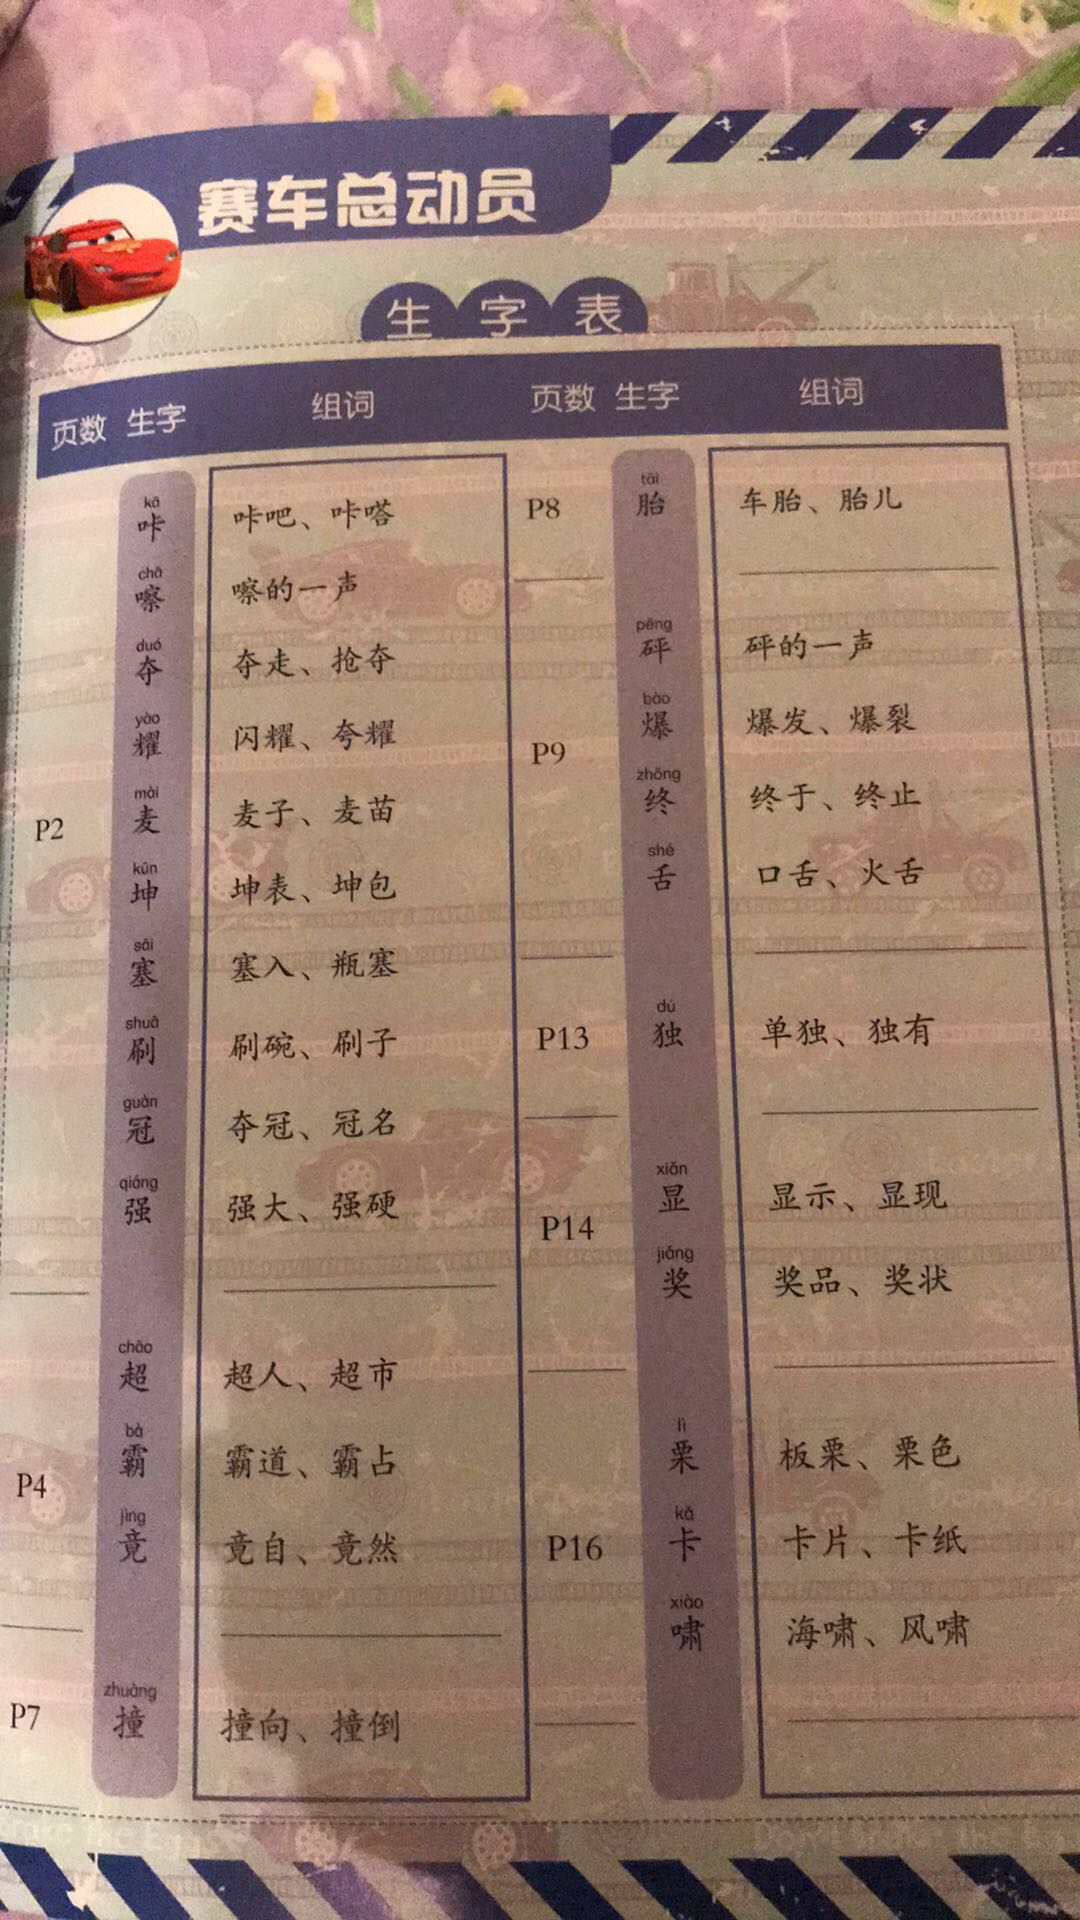 赛车总动员
生字表
页数 生字 组词 页数 生字 组词
P2
kā
咔 咔吧、咔嗒
chā
嚓 嚓的一声
duó
夺 夺走、抢夺
yào
耀 闪耀、夸耀
mài
麦 麦子、麦苗
kūn
坤 坤表、坤包
sāi
塞 塞入、瓶塞
shuā
刷 刷碗、刷子
guàn
冠 夺冠、冠名
qiáng
强 强大、强硬
P4
chāo
超 超人、超市
bà
霸 霸道、霸占
jìng
竟 竟自、竟然
P7
zhuàng
撞 撞向、撞倒
P8
tāi
胎 车胎、胎儿
P9
pēng
砰 砰的一声
bào
爆 爆发、爆裂
zhōng
终 终于、终止
shé
舌 口舌、火舌
P13
dú
独 单独、独有
P14
xiǎn
显 显示、显现
jiǎng
奖 奖品、奖状
P16
lì
栗 板栗、栗色
kǎ
卡 卡片、卡纸
xiào
啸 海啸、风啸